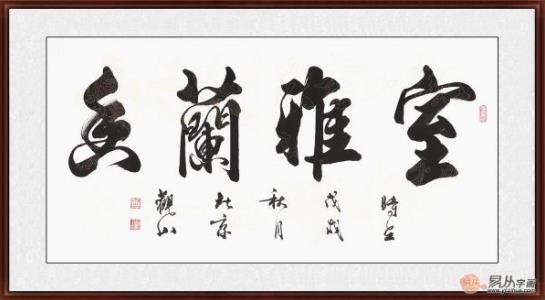 室雅蘭香
時在
戊戌
秋月
北京
觀山
易从字画
www.yczihua.com